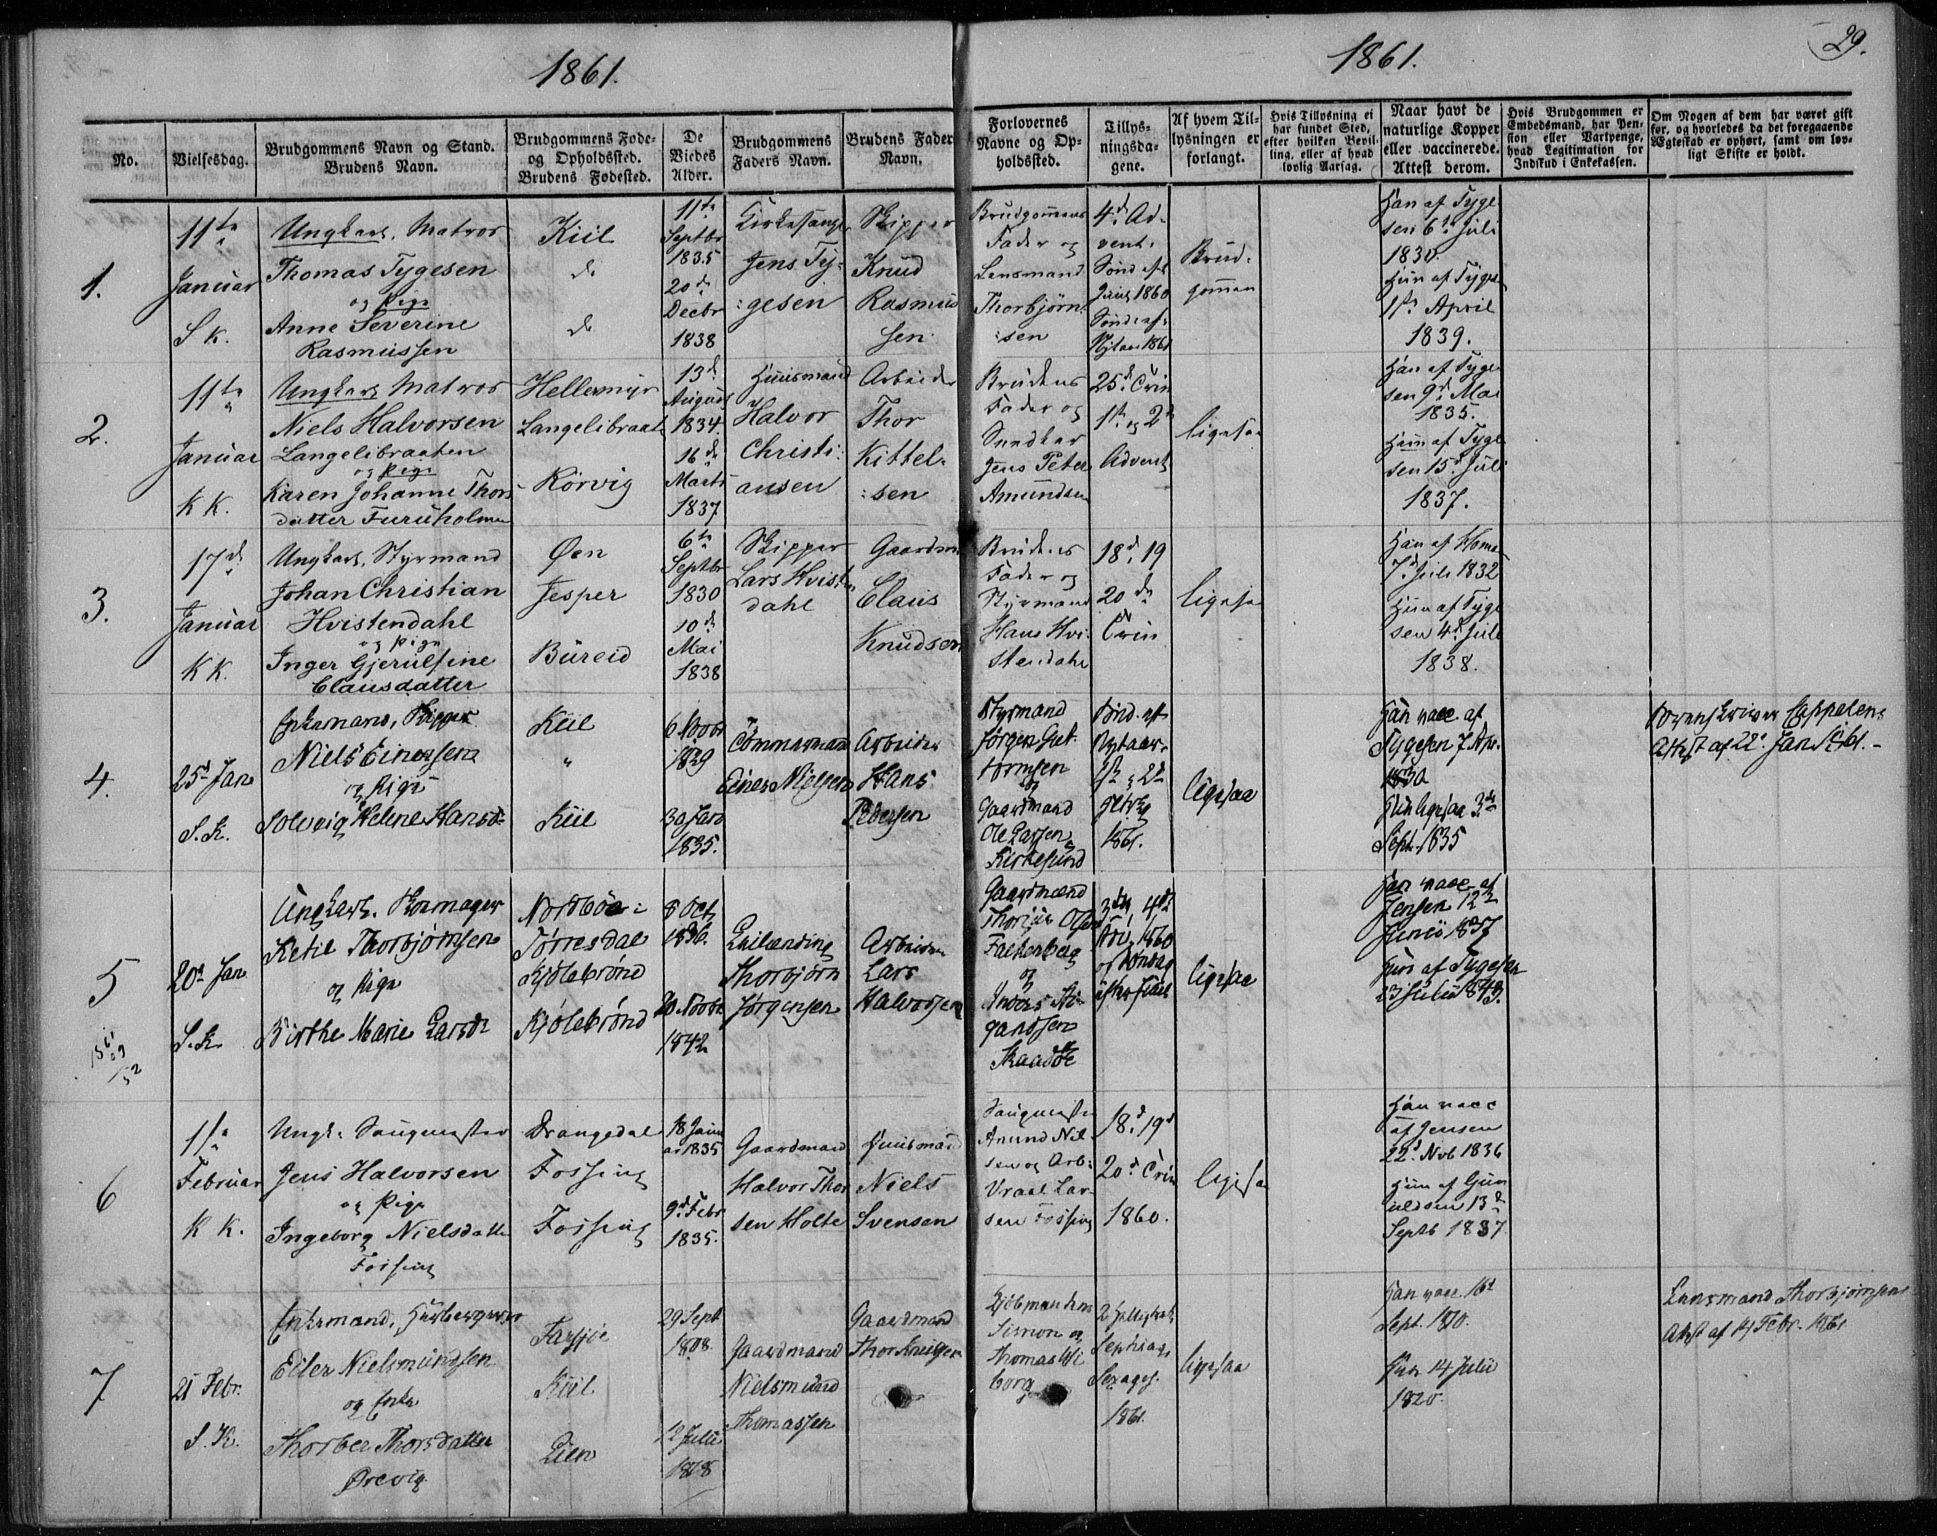 1861.
1861.
29.
No.
Vielsesdag.
Brudgommens Navn og Stand.
Brudens Navn.
Brudgommens Føde-
og Opholdssted.
Brudens Fødested.
De
Viedes
Alder.
Brudgommens
Faders Navn.
Brudens Faders
Navn.
Forlovernes
Navne og Op-
holdssted.
Tillys-
ningsda-
gene.
Af hvem Til-
lysningen er
forlangt.
Hvis Tillysning ei
har fundet Sted,
efter hvilken Bevil-
ling, eller af hvad
lovlig Aarsag.
Naar havt de
naturlige Kopper
eller vaccinerede.
Attest derom.
Hvis Brudgommen er
Embedsmand, har Pen-
sion eller Vartpenge,
hvad Legitimation for
Indskud i Enkekassen.
Om Nogen af dem har været gift
før, og hvorledes da det foregaaende
Ægteskab er ophørt, samt om lov-
ligt Skifte er holdt.
1.
11te
Januar
S K.
Ungkarl, Matros
Thomas Tygesen
og Pige
Anne Severine
Rasmussen
Kiil
do
do
11te
Septbr
1835
20de
Decbr
1838
Kirkesanger
Jens Ty-
gesen
Skipper
Knud
Rasmus
sen
Brudgommens
Fader og
Lensmand
Thorbjørn-
sen
4d Ad-
vent.
Sønd eft
Juul 1860
Sønd eft
Nytaar 1861
Brud-
gommen
Han af Tyge
sen 6te Juli
1830
Hun af Tyges
1te April
1839.
2.
11te
Januar
K K.
Ungkarl Matros
Niels Halvorsen
Langelibraaten
og Pige
Karen Johanne Thors
datter Furuholmen
Hellemyr
Langelibraat
Rörvig
13de
August
1834.
16de
Marts
1837
Huusmand
Halvor
Christi-
ansen
Arbeider
Thor
Kittel-
sen
Brudens
Fader og
Ungkar
Jens Peter
Amundsen
25d Trin
1te og 2de
Advent
ligesaa
Han af Tyge
sen 9d Mai
1835.
Hun af Tyge
sen 15d Juli
1837.
3.
17de
Januar
K K.
Ungkarl, Styrmand
Johan Christian
Hvistendahl
og Pige
Inger Gjerulfine
Clausdatter
Øen
Jesper
Bureid
6te
Septbr
1830
10de
Mai
1838
Skipper
Lars Hvisten
dahl
Gaardm
Claus
Knudsen
Brudens
Fader og
Styrmand
Hans Hvi-
stendahl
18d, 19
20de
Trin
ligesaa
Han af Homa
7d Juli 1832
Hun af Tyge
sen 4d Juli
1838.
4.
25d Jan
S. K.
Enkemand, Skipper
Niels Einersen
og Pige
Solveig Helene Hansd.
Kiil
"
Kiil
6 Novbr
1829
30 Jan
1835.
Tömmermand
Einer Nielsen
Arbeider
Hans
Pedersen
Styrmand
Jørgen Gut-
tormsen
og
Gaardmand
Ole Larsen
Kirkesund
Sønd. eft
Nytaar
1te og 2de
1861.
ligesaa
Han vacc af
Tygesen 7 Apr.
1830
Hun ligesaa 3de
Sept. 1835
Sorenskriver Cappelens
Attest af 22d Jan 1861.-
5
20d Jan
S. K.
Ungkarl. Skomager
Ketil Thorbjørnsen
og Pige
Birthe Marie Larsd.
Nordböe i
Törresdal
Kjölebrönd
Kjölebrönd
8 Oct
1836.
20 Novbr
1842
Thorbjørn
Jørgensen
Arbeider
Lars
Halvorsen
Gaardmand
Olsen
Falkenberg
og
Anders Aa-
gaudsen
Skaadöe
3de, 4de
Adv. 1860
og Søndag
efter Juul
ligesaa
Han vacc af
Jensen 12te
Juni 1837
Hun af Tygesen
23 Juli 1843.
6
1te
Februar
K K.
Ungk. Saugmester
Jens Halvorsen
og Pige
Ingeborg Nielsdatter
Fossing
Drangedal
Fossing
Fossing
18 Janu
ar 1835
9d Febr
1835.
Gaardmand
Halvor Thor
sen Holte
Huusmand
Niels
Svensen
Saugmester
Amund Niel-
sen og Arb.
Vraal Lar-
sen Fossing
18d, 19d
20d Trin
1860.
ligesaa
Han vacc
af Jensen
22d Nvb 1836
Hun af Gun
uldsen 13de
Septb 1837
7
21 Febr.
S. K.
Enkemand,
Eiler Nielsmundsen
og Enke
Thorber Thorsdatter
Ørevig
Farsjøe
Kiil
Lien
29 Sept
1808.
12 Juli
1818
Gaardmand
Nielsmund
Thomassen
Gaardmand
Thor Knutsen
Kjöbmændene
Simon og
Thomas Wi-
borg
Septuag.
Sexages.
1861.
ligesaa
Han vacc. 16d
Sept. 1810.
Hun 14 Juli
1820.
Lensmand Thorbjörnsens
Attest af 14 Febr. 1861